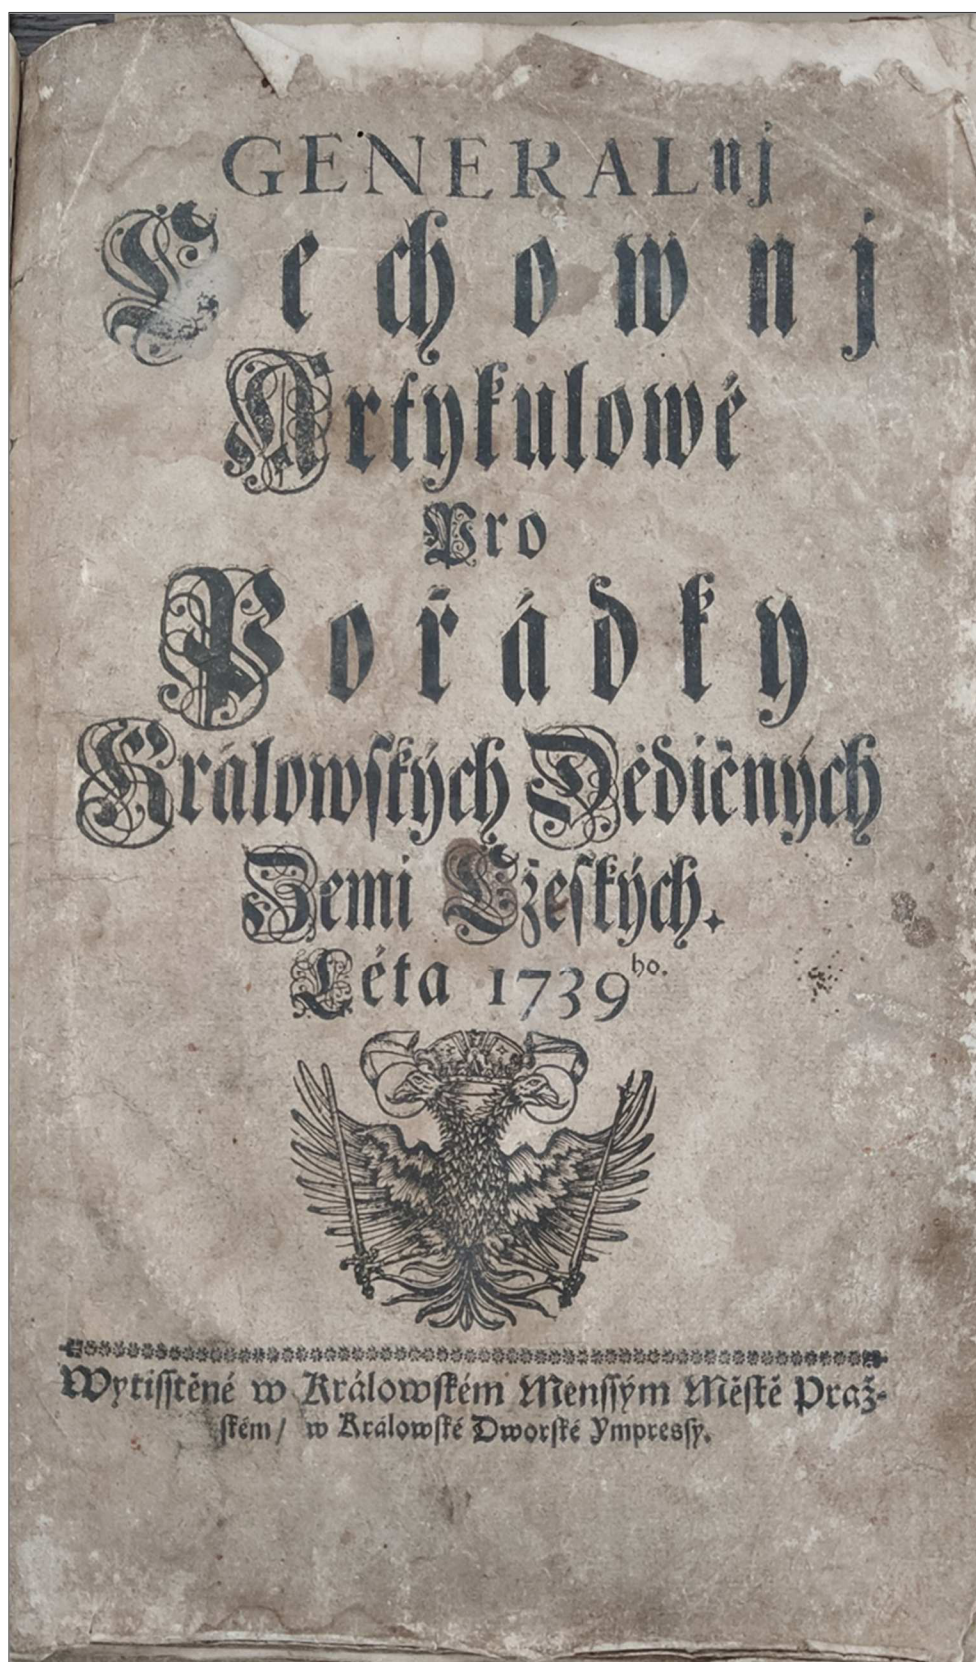 GENERALnj
Cechownj
Artykulowé
Pro
Pořádky
Králowſkých Dědičných
Zemi Cžeſkých.
Léta 1739ho.
Wytiſſtěné w Králowſkém Menſſým Městě Praž-
ſkém/ w Králowſké Dworſké Ympreſſy.